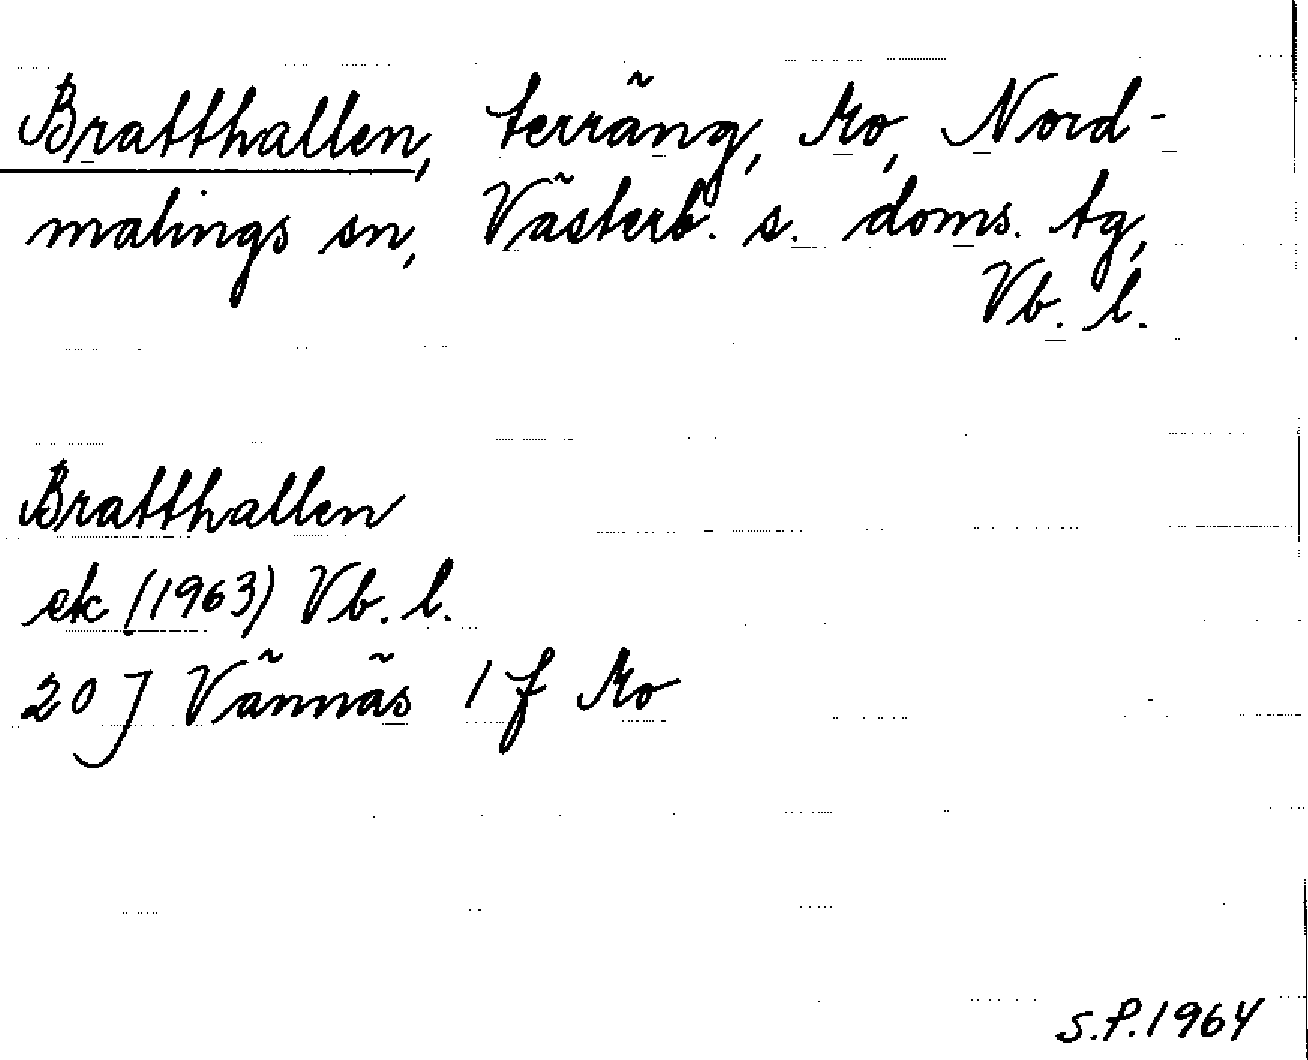 Bratthallen, terräng, Mo, Nord-
malings sn, Västerb. s. doms. tg,
Vb. l.
Bratthallen
ek (1963) Vb. l.
20 J Vännäs 1 f Mo
S.P. 1964